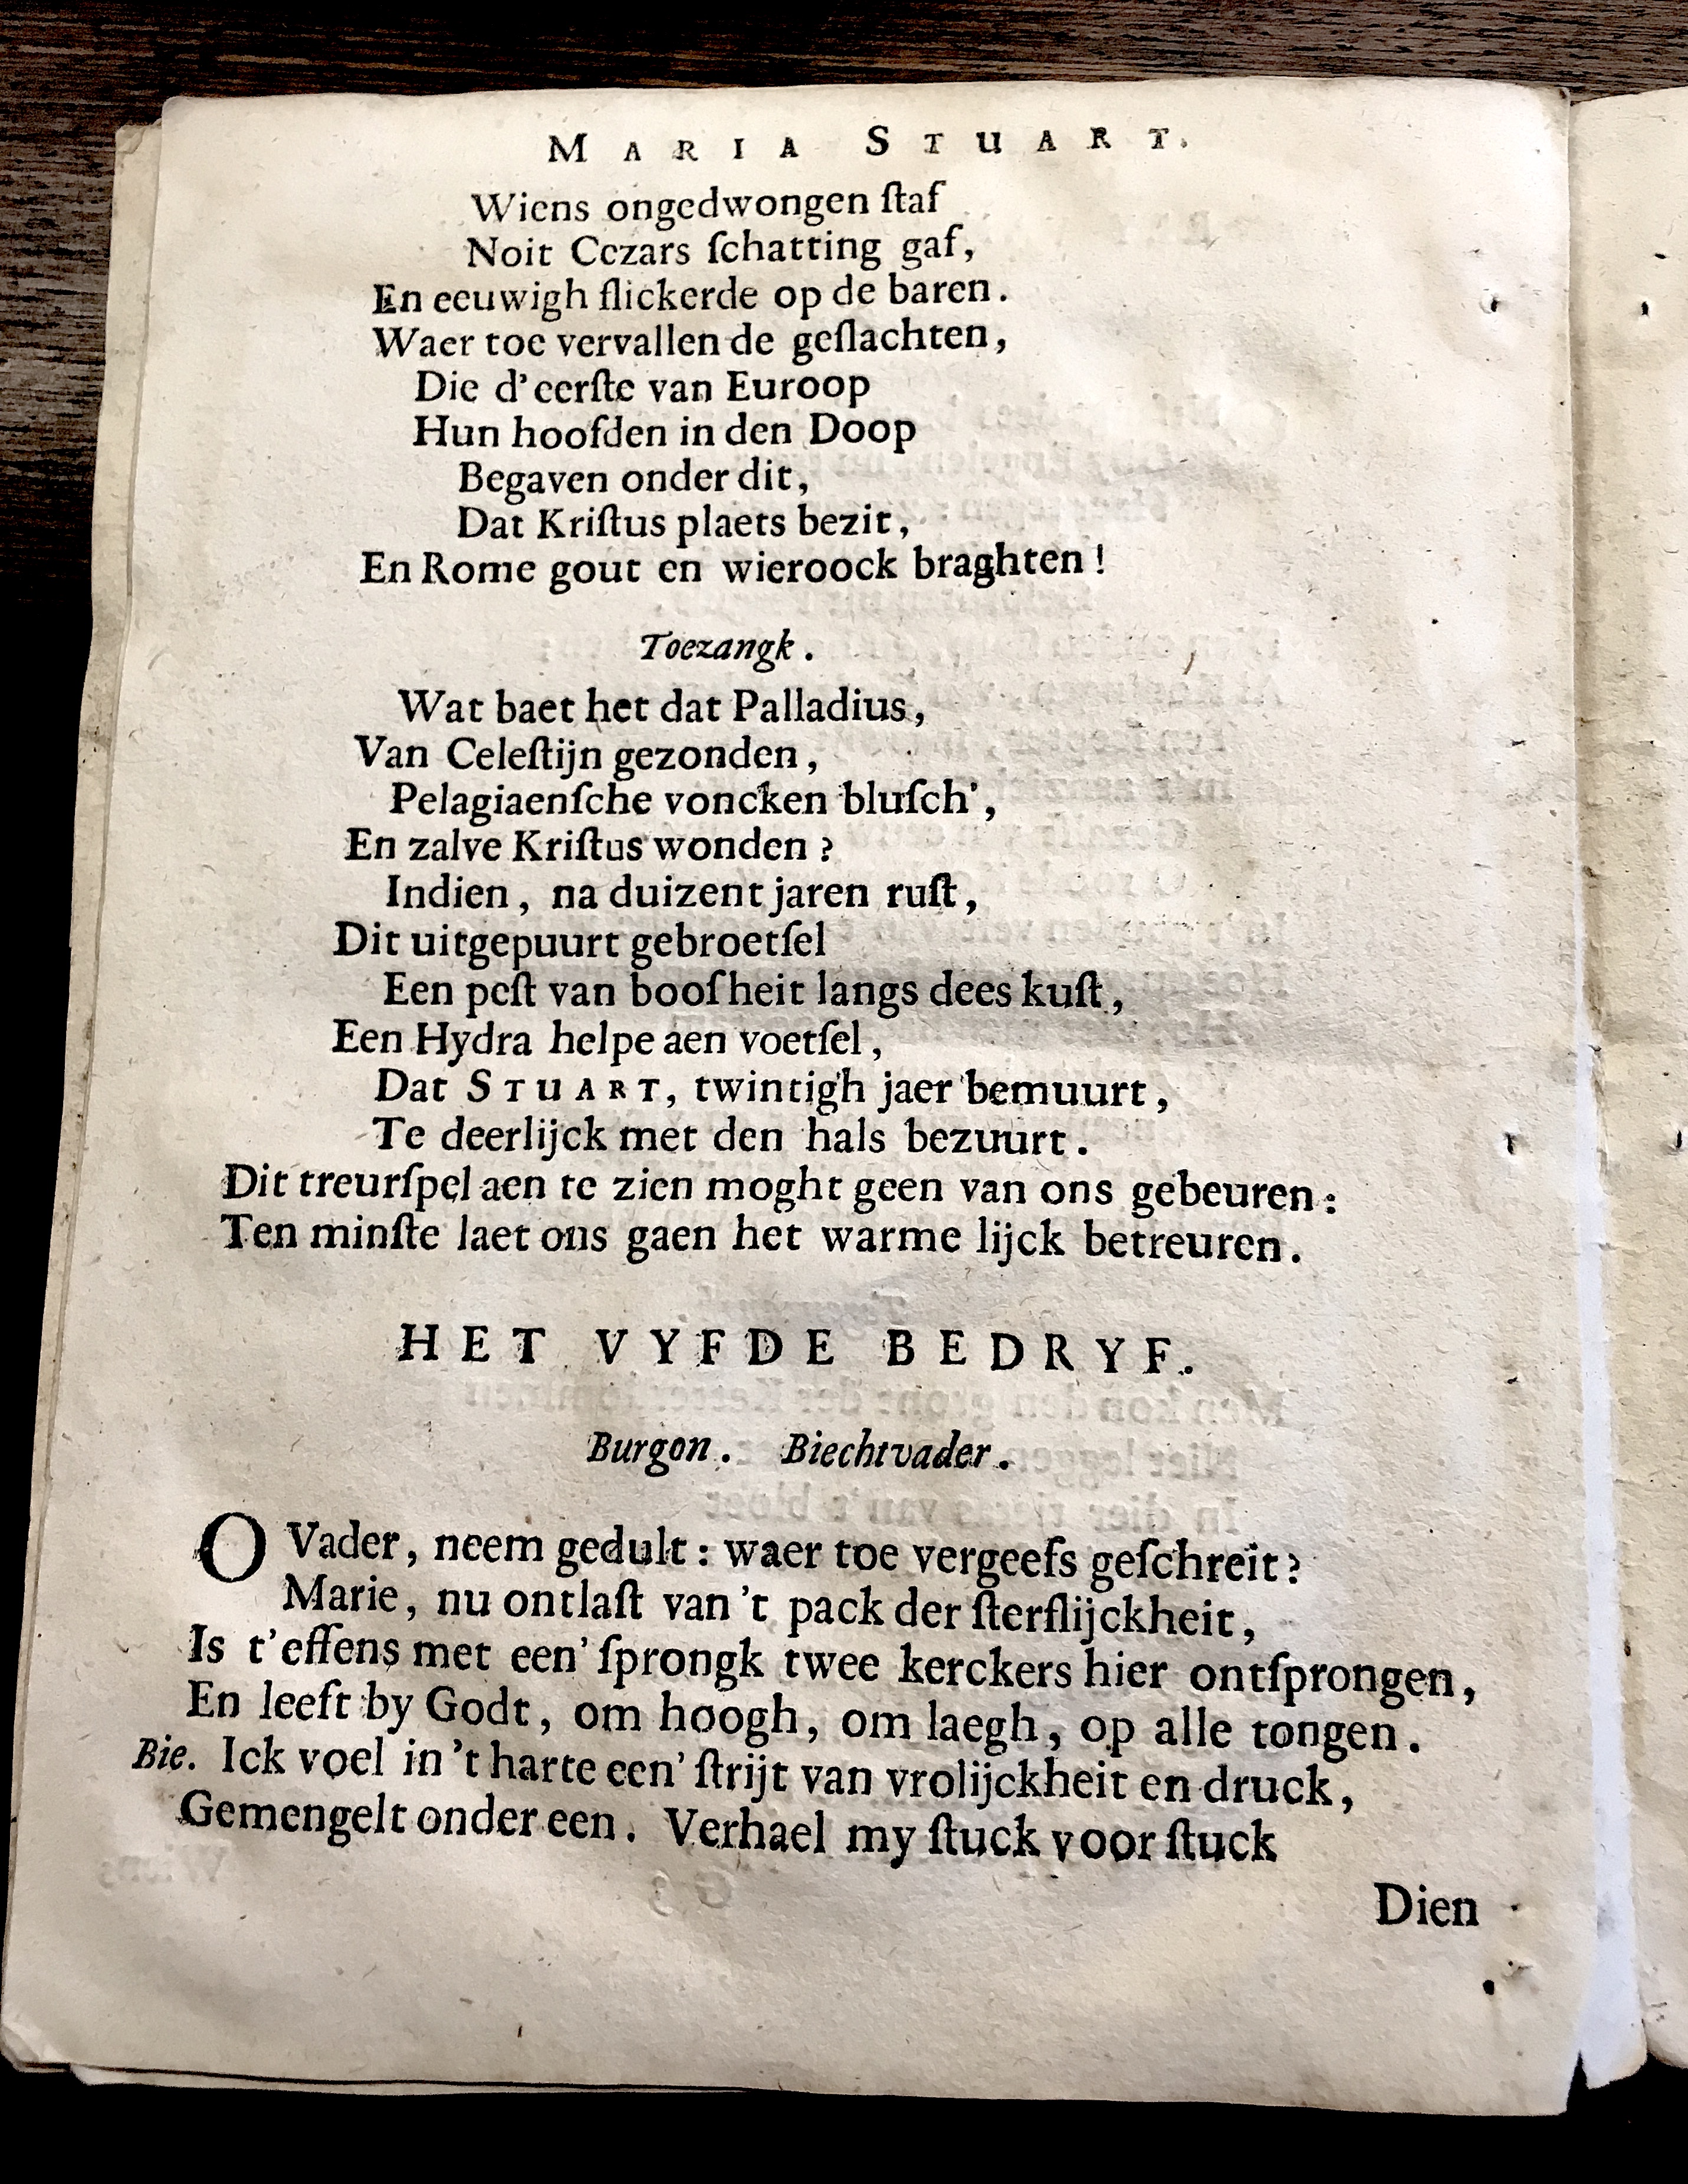 MARIA STUART.
Wiens ongedwongen ſtaf
Noit Cezars ſchatting gaf,
En eeuwigh flickerde op de baren.
Waer toe vervallen de geſlachten,
Die d'eerſte van Euroop
Hun hoofden in den Doop
Begaven onder dit,
Dat Kriſtus plaets bezit,
En Rome gout en wieroock braghten!
Toezangk.
Wat baet het dat Palladius,
Van Celeſtijn gezonden,
Pelagiaenſche voncken bluſch',
En zalve Kriſtus wonden?
Indien, na duizent jaren ruſt,
Dit uitgepuurt gebroetſel
Een peſt van booſheit langs dees kuſt,
Een Hydra helpe aen voetſel,
Dat STUART, twintigh jaer bemuurt,
Te deerlijck met den hals bezuurt.
Dit treurſpel aen te zien moght geen van ons gebeuren:
Ten minſte laet ons gaen het warme lijck betreuren.
HET VYFDE BEDRYF.
Burgon. Biechtvader.
O Vader, neem gedult: waer toe vergeefs geſchreit?
Marie, nu ontlaſt van 't pack der ſterflijckheit,
Is t'effens met een' ſprongk twee kerckers hier ontſprongen,
En leeft by Godt, om hoogh, om laegh, op alle tongen.
Bie. Ick voel in 't harte een' ſtrijt van vrolijckheit en druck,
Gemengelt onder een. Verhael my ſtuck voor ſtuck
Dien